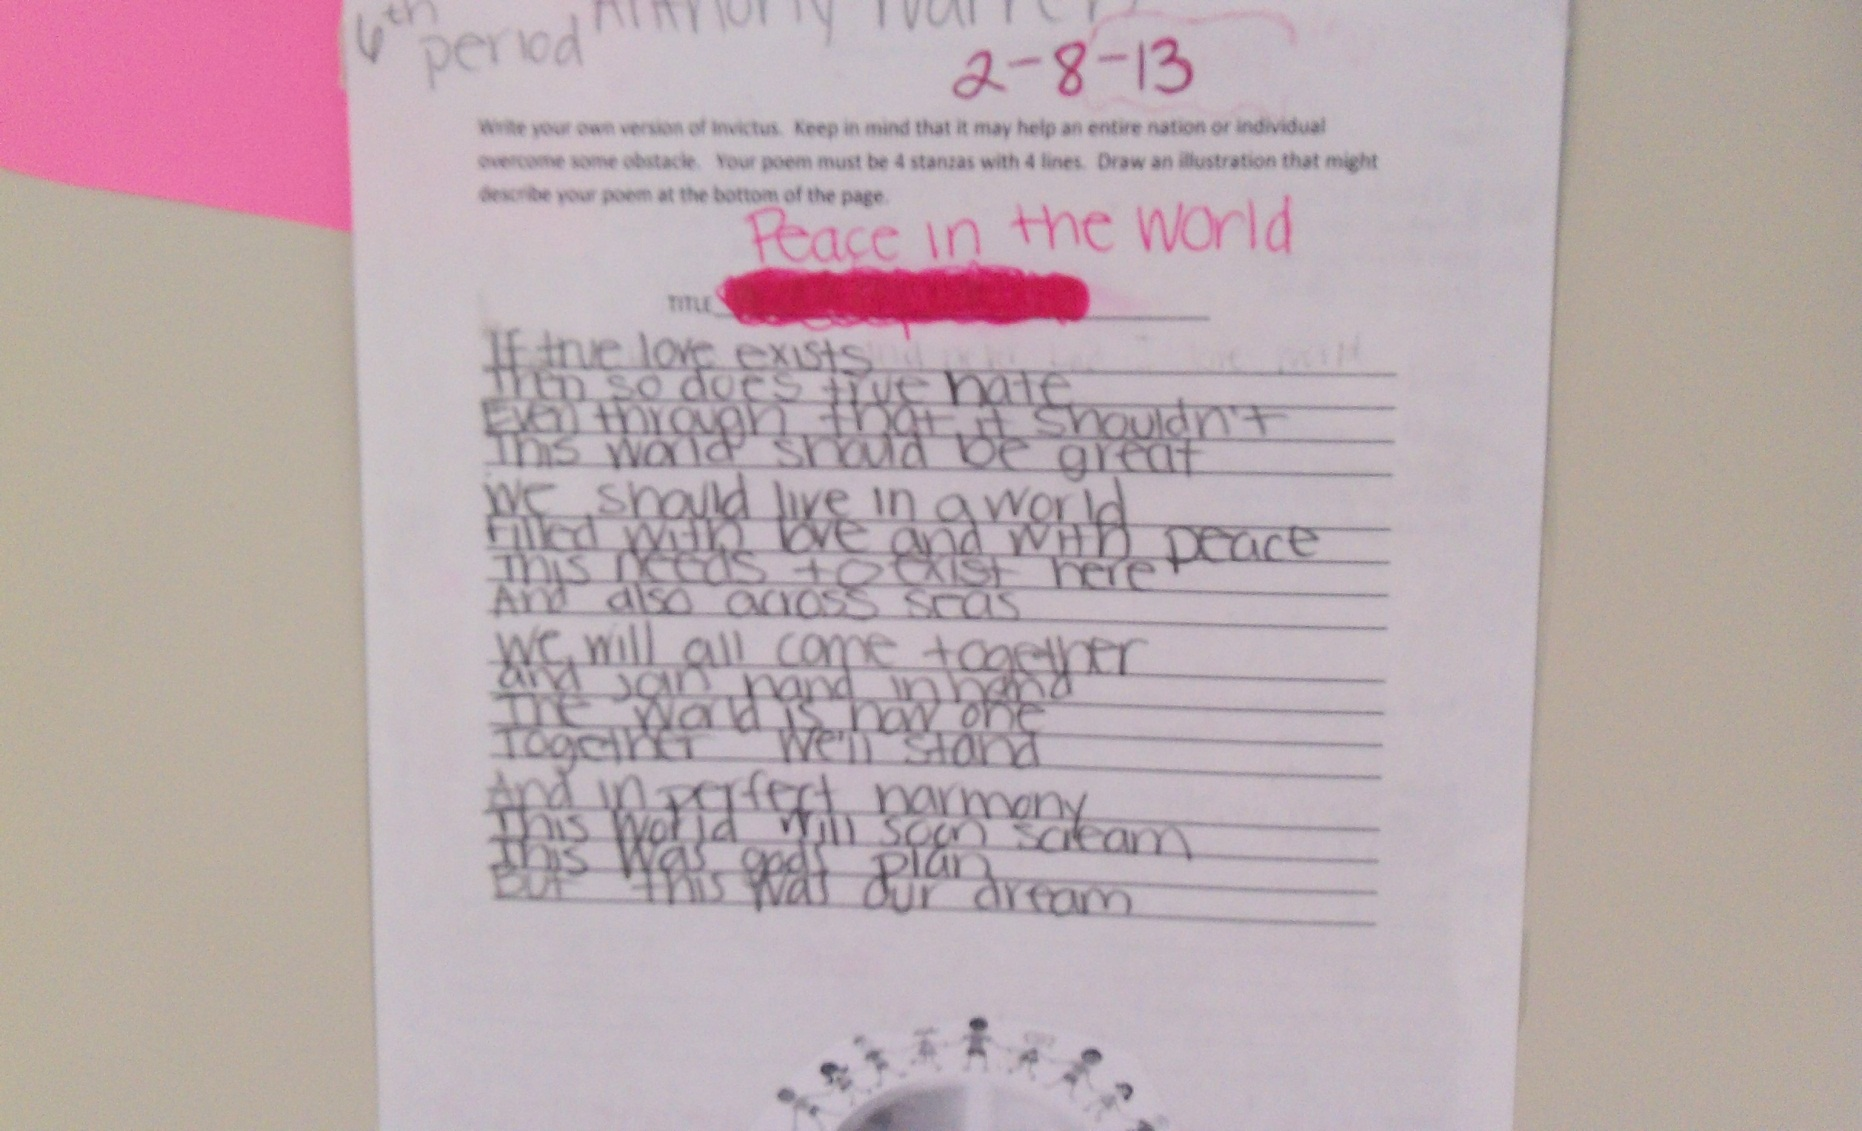 6th period Anthony
2-8-13
Write your own version of Invictus. Keep in mind that it may help an entire nation or individual
overcome some obstacle. Your poem must be 4 stanzas with 4 lines. Draw an illustration that might
describe your poem at the bottom of the page.
Peace in the World
TITLE
If true love exists
Then so does true hate
Even through that it shouldn't
This world should be great
We should live in a world
Filled with love and with peace
This needs to exist here
And also across seas
We will all come together
and join hand in hand
The world is now one
Together we'll stand
And in perfect harmony
This world will soon scream
This was gods plan
But this was our dream